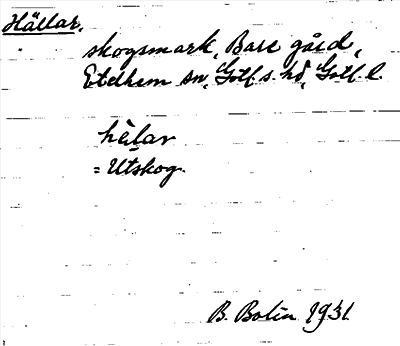 Hällar,
skogsmark, Bare gård,
Etelhem sn, Gotl. s. hd, Gotl. l.
hälar
= Utskog.
B. Bolin 1931.